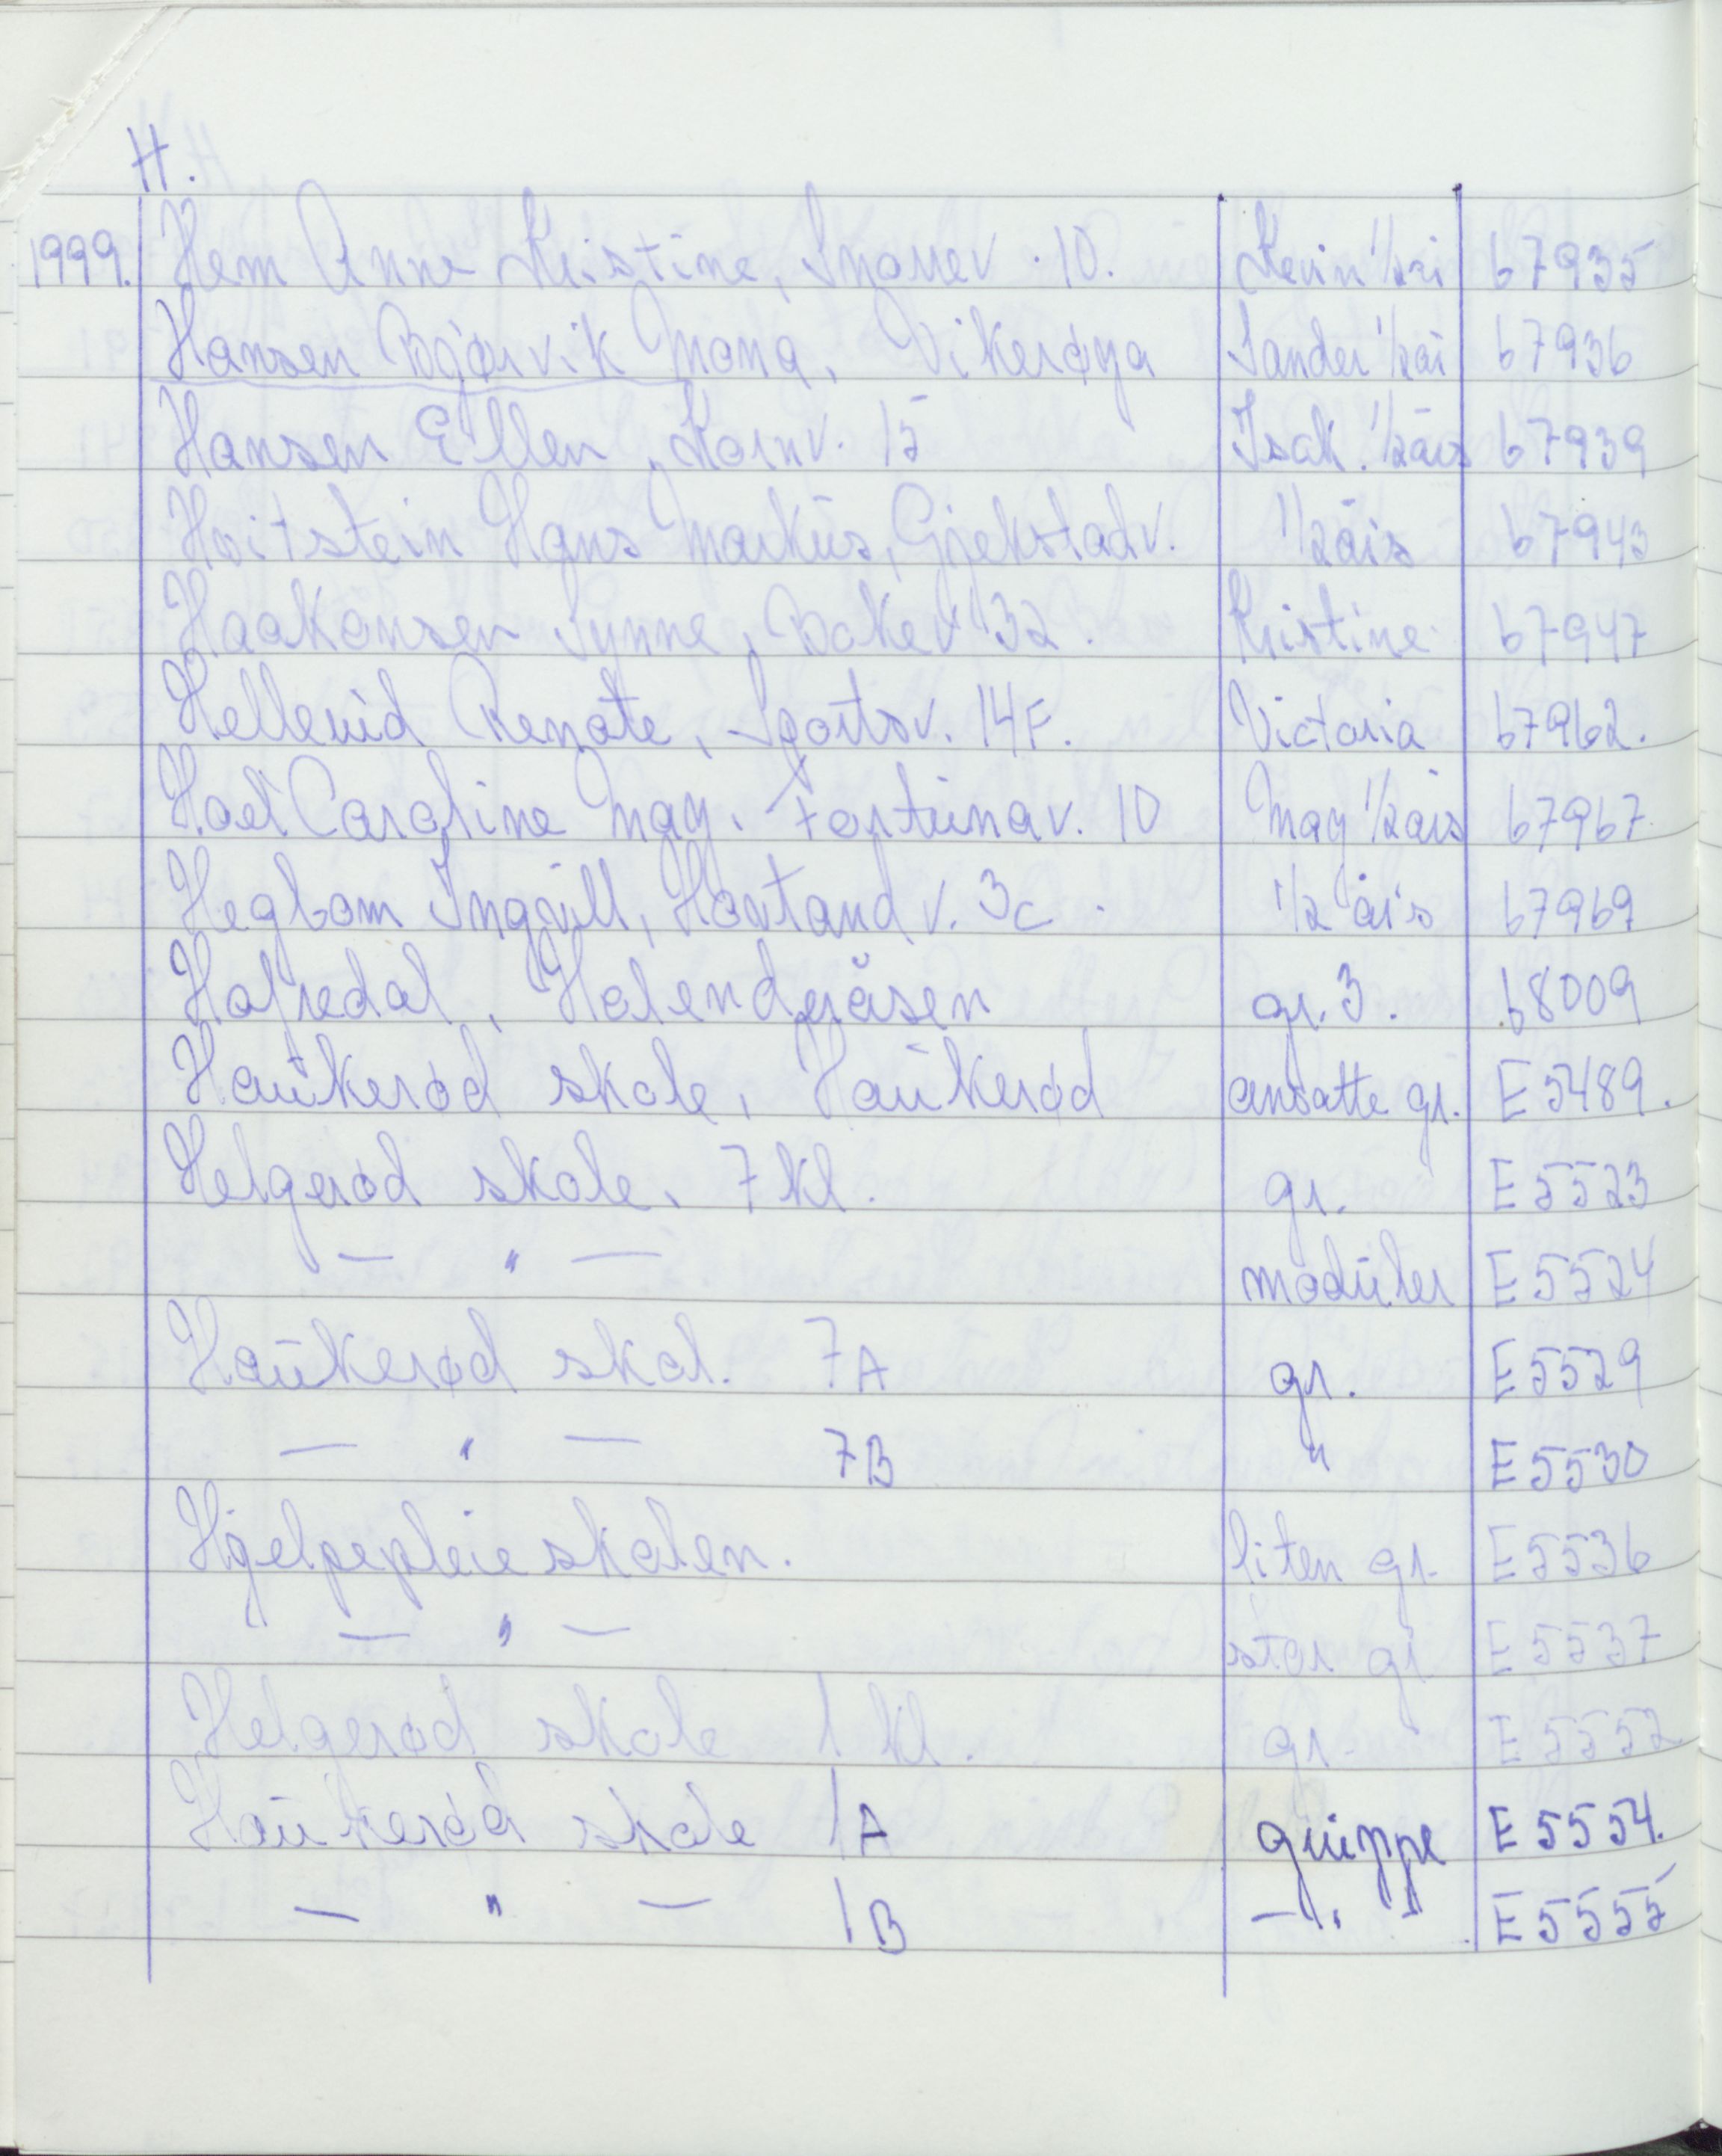 H.
1999. Hem Anne Kristine, Snorrev. 10. Kevin 1/2år 67935
Hansen Bjørvik Mona, Vikerøya Sander 1/2år 67936
Hansen Ellen, Kornv. 15 Isak. 1/2års 67939
Hvitstein Hans Markus, Gjekstadv. 1/2års 67943
Haakonsen Synne, Bakev 32. Kristine 67947
Hellenid Renate, Sportsv. 14F. Victoria 67962.
Hoel Caroline May. Fortunav. 10 May 1/2års 67967.
Hegbom Ingvill, Hovlandv. 3c. 1/2 års 67969
Hafredal, Holenderåsen gr. 3. 68009
Haukerød skole, Haukerød ansatte gr. E 5489.
Helgerød skole, 7 kl. gr. E 5523
— " — moduler E 5524
Haukerød skol. 7A gr. E 5529
— " — 7B " E 5530
Hjelpepleieskolen. liten gr. E 5536
— " — stor gr E 5537
Helgerød skole 1 kl. gr. E 5552
Haukerød skole 1A gruppe E 5554.
— " — 1B — " — E 5555